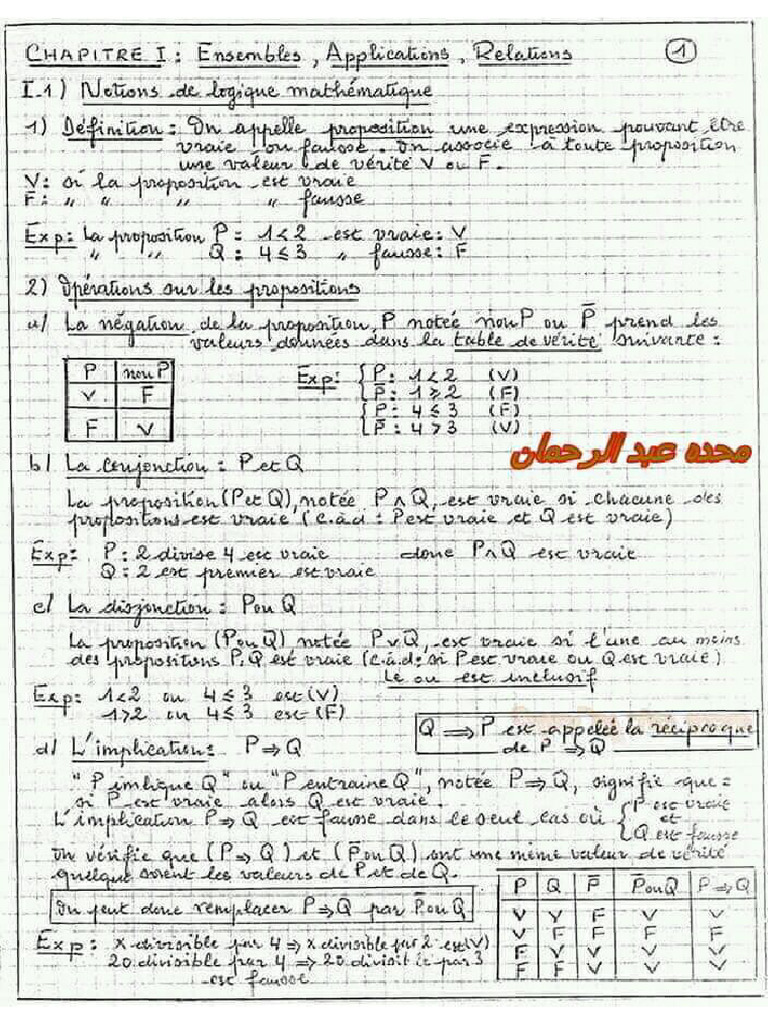 CHAPITRE I : Ensembles, Applications, Relations ①
I.1) Notions de logique mathématique
1) Définition : On appelle proposition une expression pouvant être
vraie ou fausse. On associe à toute proposition
une valeur de vérité V ou F.
V : si la proposition est vraie
F : " " " " fausse
Exp : La proposition P : 1 < 2 est vraie : V
" " Q : 4 ≤ 3 " fausse : F
2) Opérations sur les propositions
a/ La négation de la proposition P notée nonP ou P̅ prend les
valeurs données dans la table de vérité suivante :
P | nonP
V | F
F | V
Exp : { P : 1 < 2 (V)
P̅ : 1 ≥ 2 (F)
{ P : 4 ≤ 3 (F)
P̅ : 4 > 3 (V)
محده عبد الرحمان
b/ La conjonction : P et Q
La proposition (P et Q), notée P ∧ Q, est vraie si chacune des
propositions est vraie (c.à.d : P est vraie et Q est vraie)
Exp : P : 2 divise 4 est vraie donc P ∧ Q est vraie
Q : 2 est premier est vraie
c/ La disjonction : P ou Q
La proposition (P ou Q) notée P ∨ Q, est vraie si l'une au moins
des propositions P, Q est vraie (c.à.d : si P est vraie ou Q est vraie)
Le ou est inclusif
Exp : 1 < 2 ou 4 ≤ 3 est (V)
1 > 2 ou 4 ≤ 3 est (F)
Q ⟹ P est appelée la réciproque
de P ⟹ Q
d/ L'implication : P ⟹ Q
" P imlique Q " ou " P entraine Q ", notée P ⟹ Q, signifie que :
si P est vraie alors Q est vraie.
L'implication P ⟹ Q est fausse dans le seul cas où { P est vraie
et
Q est fausse
On vérifie que (P ⟹ Q) et (P̅ ou Q) ont une même valeur de vérité
quelque soient les valeurs de P et de Q.
On peut donc remplacer P ⟹ Q par P̅ ou Q
Exp : x divisible par 4 ⟹ x divisible par 2 est (V)
20 divisible par 4 ⟹ 20 par 3
est fausse
P | Q | P̅ | P̅ ou Q | P ⟹ Q
V | V | F | V | V
V | F | F | F | F
F | V | V | V | V
F | F | V | V | V